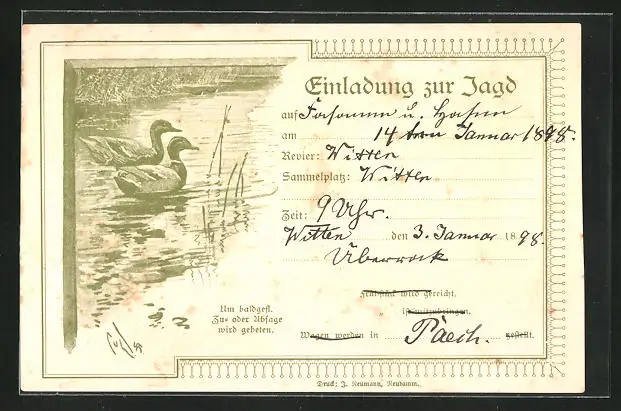 Einladung zur Jagd
auf Fasanen u. Hasen
am 14ten Januar 1898.
Revier: Witten
Sammelplatz: Witten
Zeit: 9 Uhr.
Witten den 3. Januar 1898.
Frühstück wird gereicht.
" ist mitzubringen.
Wagen werden in gestellt.
Um baldgefl.
Zu- oder Absage
wird gebeten.
Druck: J. Neumann, Neudamm.